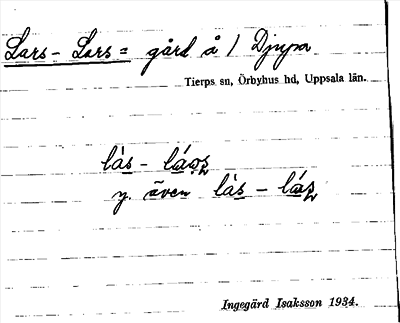 Lars-Lars = gård å / Djupa
Tierps sn, Örbyhus hd, Uppsala län.
làs - láos
y. även làs - lás
Ingegärd Isaksson 1934.